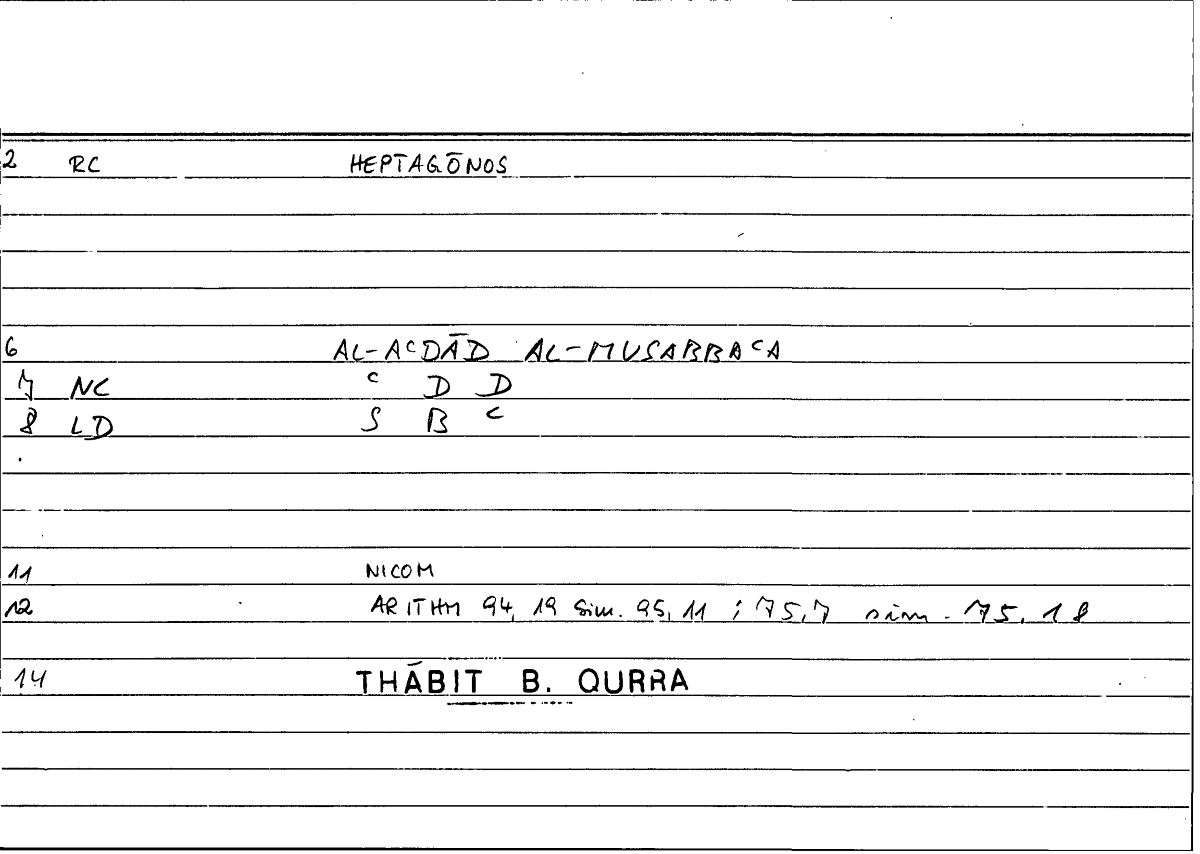 2 RC HEPTAGŌNOS
6 AL-AᶜDĀD AL-MUSABBAᶜA
7 NC ᶜ D D
8 LD S B ᶜ
11 NICOM
12 ARITHM 94, 19 sim. 95, 11 ; 75,7 sim. 75, 18
14 THĀBIT B. QURRA